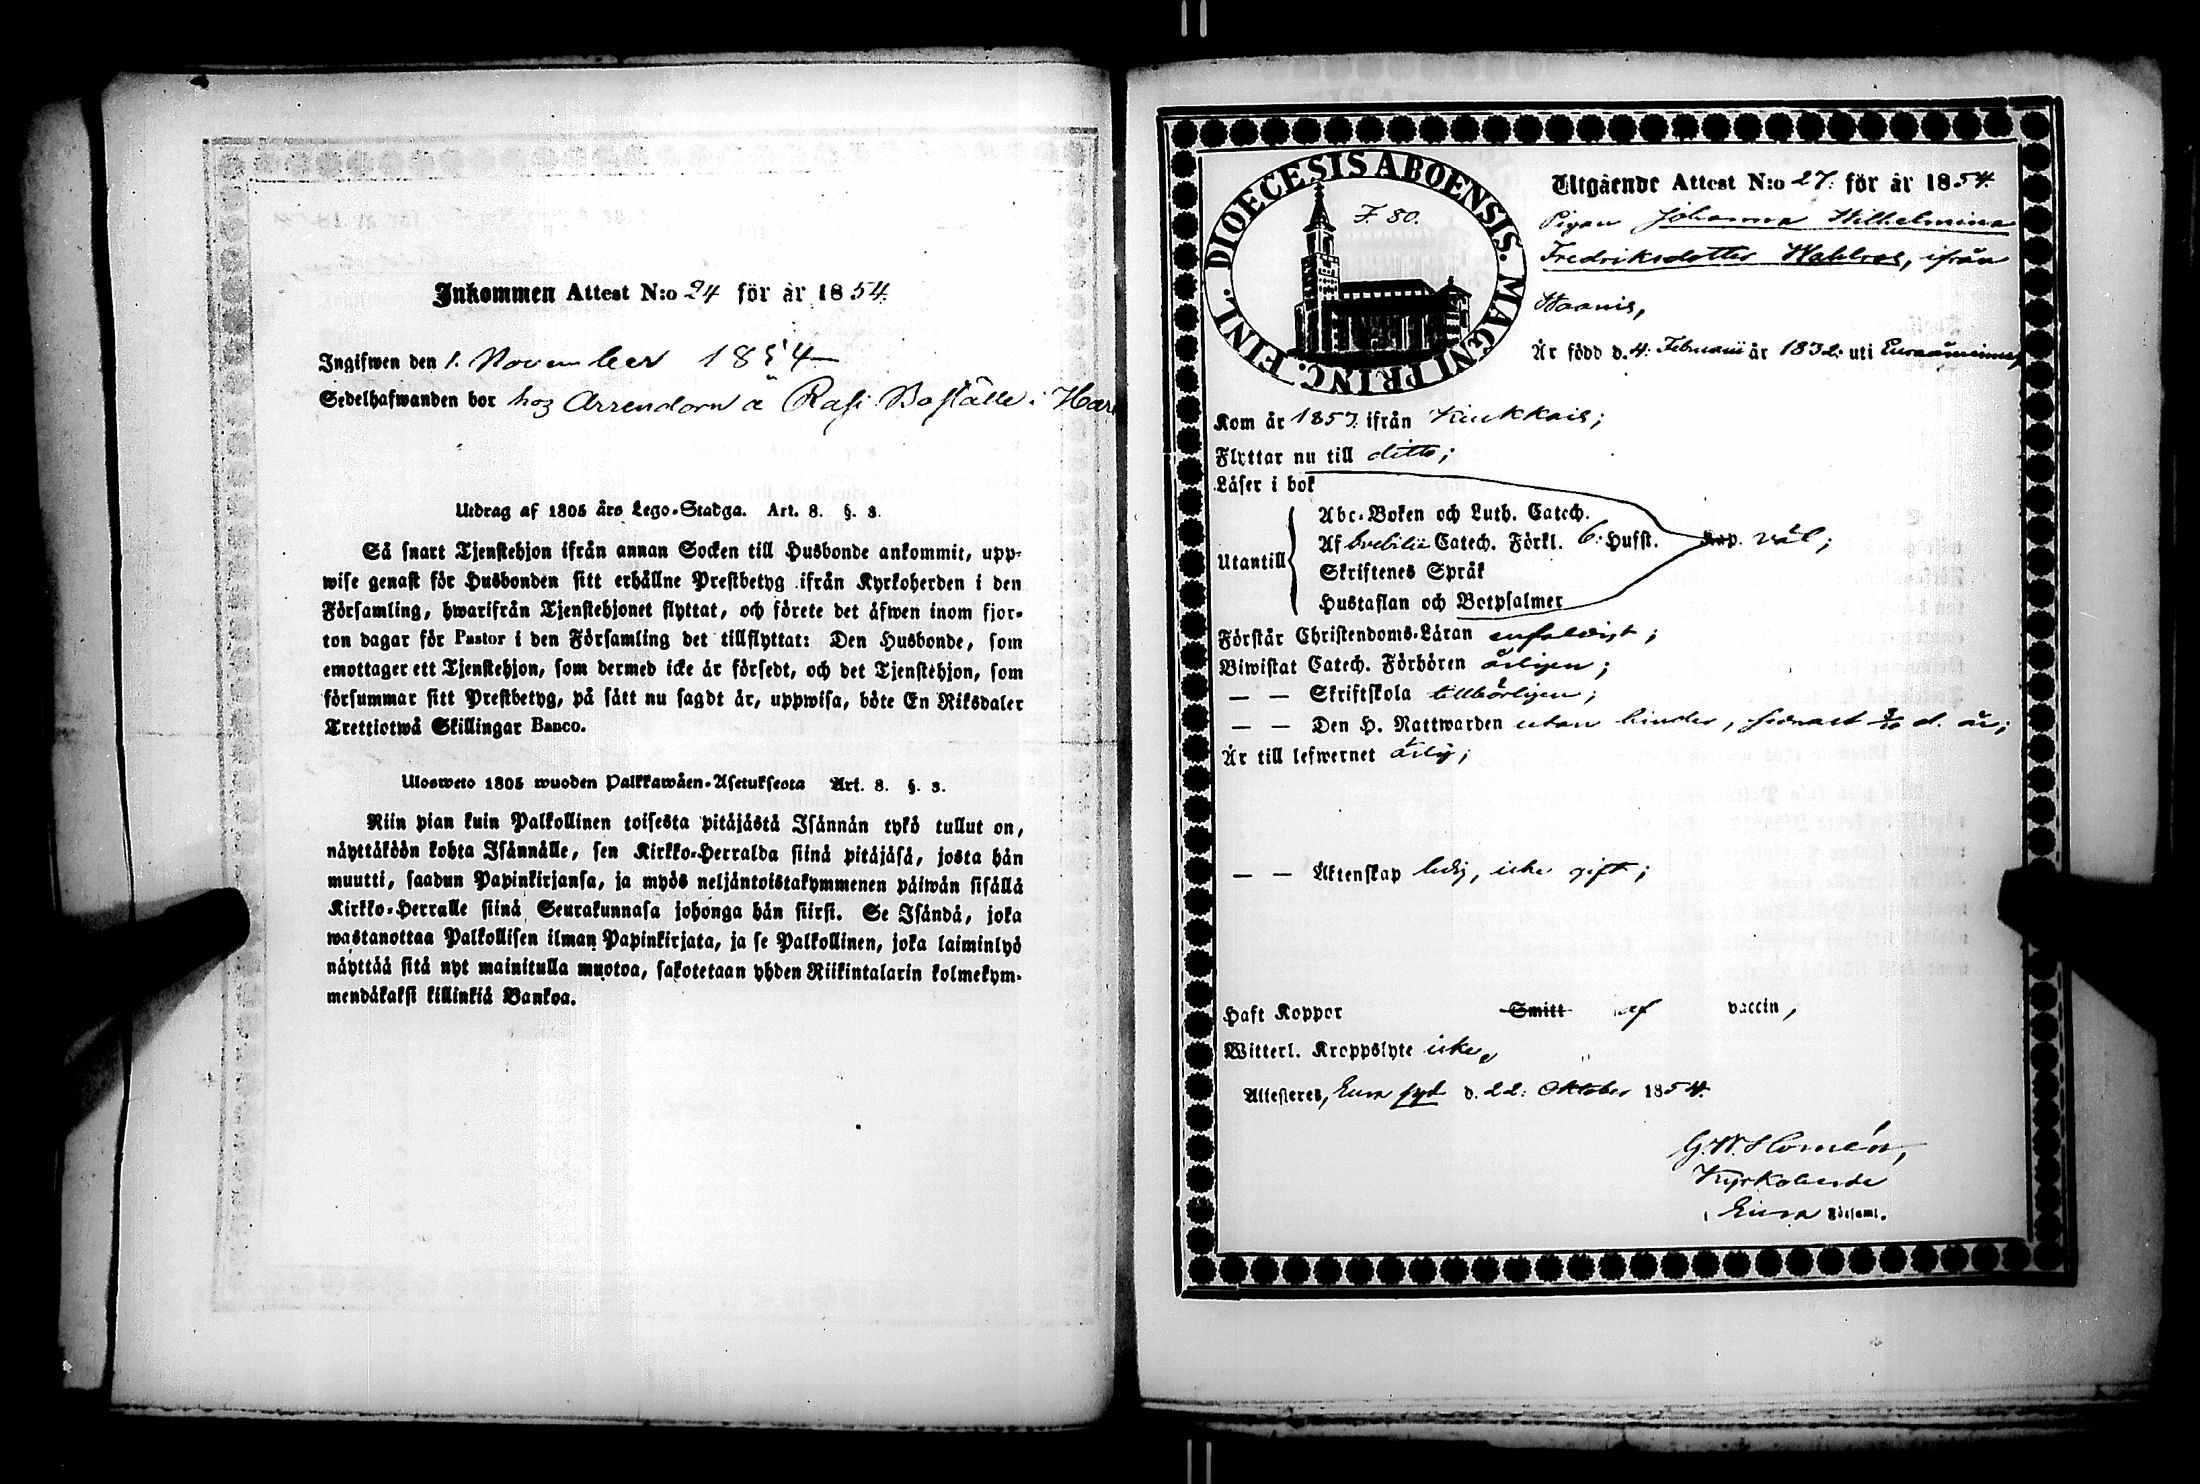 Inkommen Attest N:o 24 för år 1854.
Ingifwen den 1. November 1854
Sedelhafwanden bor hos Arrendorn å Rasi Boställe i
Utdrag af 1805 års Lego-Stadga. Art. 8. §. 3.
Så snart Tjenstehjon ifrån annan Socken till Husbonde ankommit, upp-
wise genast för Husbonden sitt erhållne Prestbetyg ifrån Kyrkoherden i den
Församling, hwarifrån Tjenstehjonet flyttat, och förete det äfwen inom fjor-
ton dagar för Pastor i den Församling det tillflyttat: Den Husbonde, som
emottager ett Tjenstehjon, som dermed icke är försedt, och det Tjenstehjon, som
försummar sitt Prestbetyg, på sätt nu sagdt är, uppwisa, böte En Riksdaler
Trettiotwå Skillingar Banco.
Ulosweto 1805 wuoden Palkkawäen-Asetuksesta Art. 8. §. 3.
Niin pian kuin Palkollinen toisesta pitäjästä Isännän tykö tullut on,
näyttäköön kohta Isännälle, sen Kirkko-Herralda siinä pitäjäsä, josta hän
muutti, saadun Papinkirjansa, ja myös neljäntoistakymmenen päiwän sisällä
Kirkko-Herralle siinä Seurakunnasa johonga hän siirsi. Se Isändä, joka
wastanottaa Palkollisen ilman Papinkirjata, ja se Palkollinen, joka laiminlyö
näyttää sitä nyt mainitulla muotoa, sakotetaan yhden Riikintalarin kolmekym-
mendäkaksi killinkiä Bankoa.
DIOECESIS ABOENSIS. MAGNI PRINC. FINL.
F. 80.
Utgående Attest N:o 27. för år 1854.
Pigan Johanna Wilhelmina
Fredriksdotter Wahlros, ifrån
Är född d. 4. Februarii år 1832. uti
Kom år 1853. ifrån Kiukkais;
Flyttar nu till ditto;
Läser i bok
Utantill
Abc-Boken och Luth. Catech.
Af Svebilii Catech. Förkl. 6. Hufst. Kap. väl;
Skriftenes Språk
Hustaflan och Botpsalmer
Förstår Christendoms-Läran enfaldigt;
Biwistat Catech. Förhören årligen;
— — Skriftskola tillbörligen;
— — Den H. Nattwarden utan hinder, senast d. år;
Är till lefwernet ärlig;
— — Äktenskap ledig, icke gift;
Haft Koppor Smitt af vaccin,
Witterl. Kroppslyte icke,
Attesteres, Eura d. 22: Oktober 1854.
G. W. Homén,
Kyrkoherde
i Eura Församl.